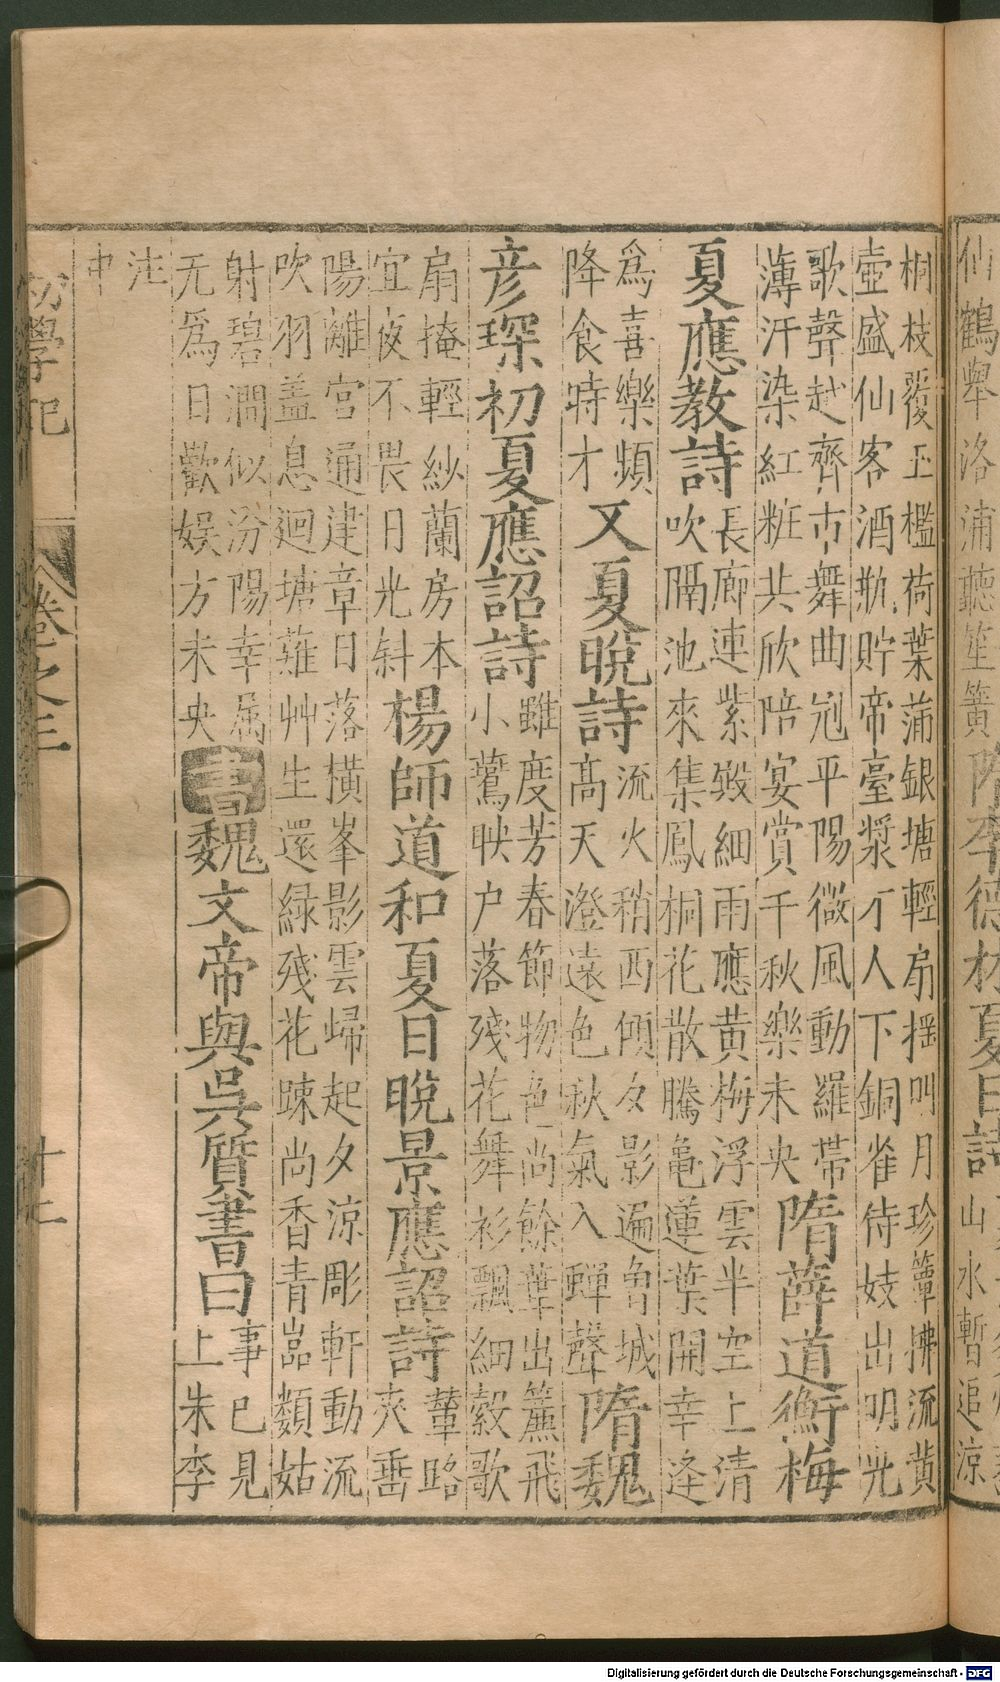 仙鶴舉洛浦聽笙簧隋李德林夏日詩山水暫追涼
桐枝覆玉檻荷葉蒲銀塘輕扇揺明月珍簟拂流黄
壺盛仙客酒瓶貯帝臺漿才人下銅雀侍妓出明光
歌聲越齊市舞曲冠平陽微風動羅帶
薄汗染紅粧共欣陪宴賞千秋樂未央
隋薛道衡梅
夏應教詩
長廊連紫毀細雨應黄梅浮雲半空上清
吹隔池來集鳳桐花散騰龜蓮葉開幸逢
為喜樂頻
降食時才
又夏晚詩
流火稍西傾夕影遍曾城
高天澄遠色秋氣入蟬聲
隋魏
彦琛初夏應詔詩
雖度芳春節物色尚餘華出簾飛
小鸎映户落殘花舞衫飄細縠歌
扇掩輕紗蘭房本
宜夜不畏日光斜
楊師道和夏日晚景應詔詩
輦路
夾垂
陽離宮通建章日落橫峯影雲歸起夕涼彫軒動流
吹羽盖息迴塘薙艸生還緑殘花踈尚香青嵓類姑
射碧澗似汾陽幸属
无爲日歡娱方未央
書
魏文帝與吳質書曰
事已見
上朱李
注
中
初學記 卷之三 十二
Digitalisierung gefördert durch die Deutsche Forschungsgemeinschaft - DFG